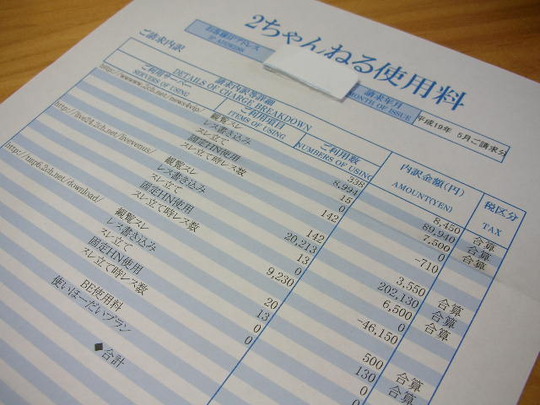 2ちゃんねる使用料
請求年月
MONTH OF ISSUE
平成19年 5月ご請求分
ご請求内訳
請求内訳等明細
DETAILS OF CHARGE BREAKDOWN
ご利用サーバー
SERVERS OF USING
ご利用項目
ITEMS OF USING
ご利用数
NUMBERS OF USING
内訳金額(円)
AMOUNT(YEN)
税区分
TAX
閲覧スレ 338 8,450 合算
レス書き込み 8,994 89,940 合算
スレ立て 15 7,500 合算
固定HN使用 0 0
スレ立て時レス数 142 -710
http://live24.2ch.net/livevenus/
閲覧スレ 142 3,550 合算
レス書き込み 20,213 202,130 合算
スレ立て 13 6,500 合算
固定HN使用 0 0
スレ立て時レス数 9,230 -46,150
http://tmp6.2ch.net/download/
閲覧スレ 20 500 合算
レス書き込み 13 130 合算
スレ立て 0 0 合算
固定HN使用 0
スレ立て時レス数 0
BE使用料
使いほーだいプラン
◆合計